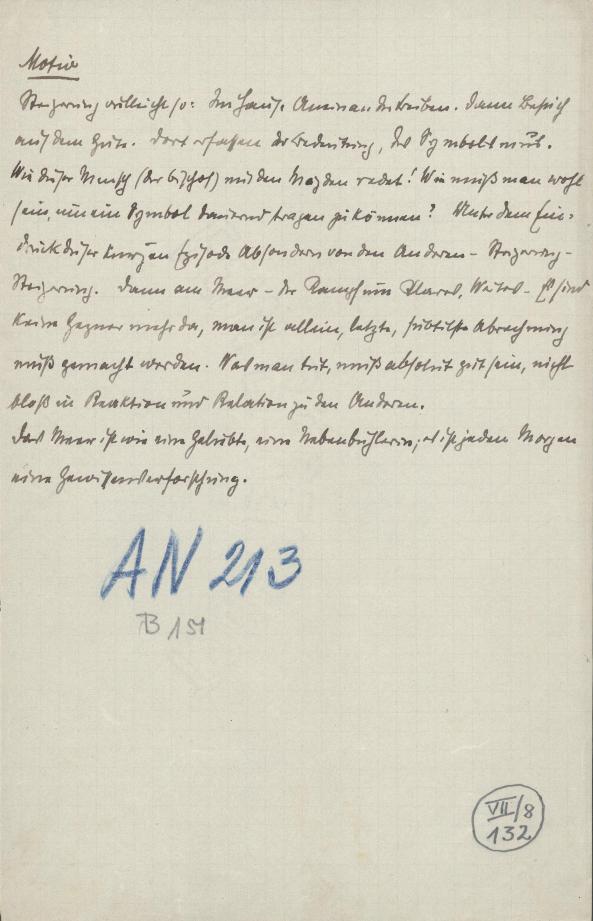 Motiv
Steigerung vielleicht so: Im Hause Aneinandertreiben. Dann Besuch
auf dem Gute. Dort erfassen der Bedeutung, des Symbols
Wie dieser Mensch (der Bischof) mit den Mägden redet! Wie muß man wohl
sein, um ein Symbol dauernd tragen zu können? Unter dem Ein-
druck dieser kurzen Episode Absondern von den Anderen – Steigerung –
Steigerung. Dann am Meer – der Kampf um Klares, Weites – Es sind
keine Gegner mehr da, man ist allein, letzte, subtilste Abrechnung
muß gemacht werden. Was man tut, muß absolut gut sein, nicht
bloß in Reaktion und Relation zu den Anderen.
Das Meer ist wie eine Geliebte, eine Nebenbuhlerin; es ist jeden Morgen
eine Gewissenserforschung.
AN 213
B 151
VII/8
132